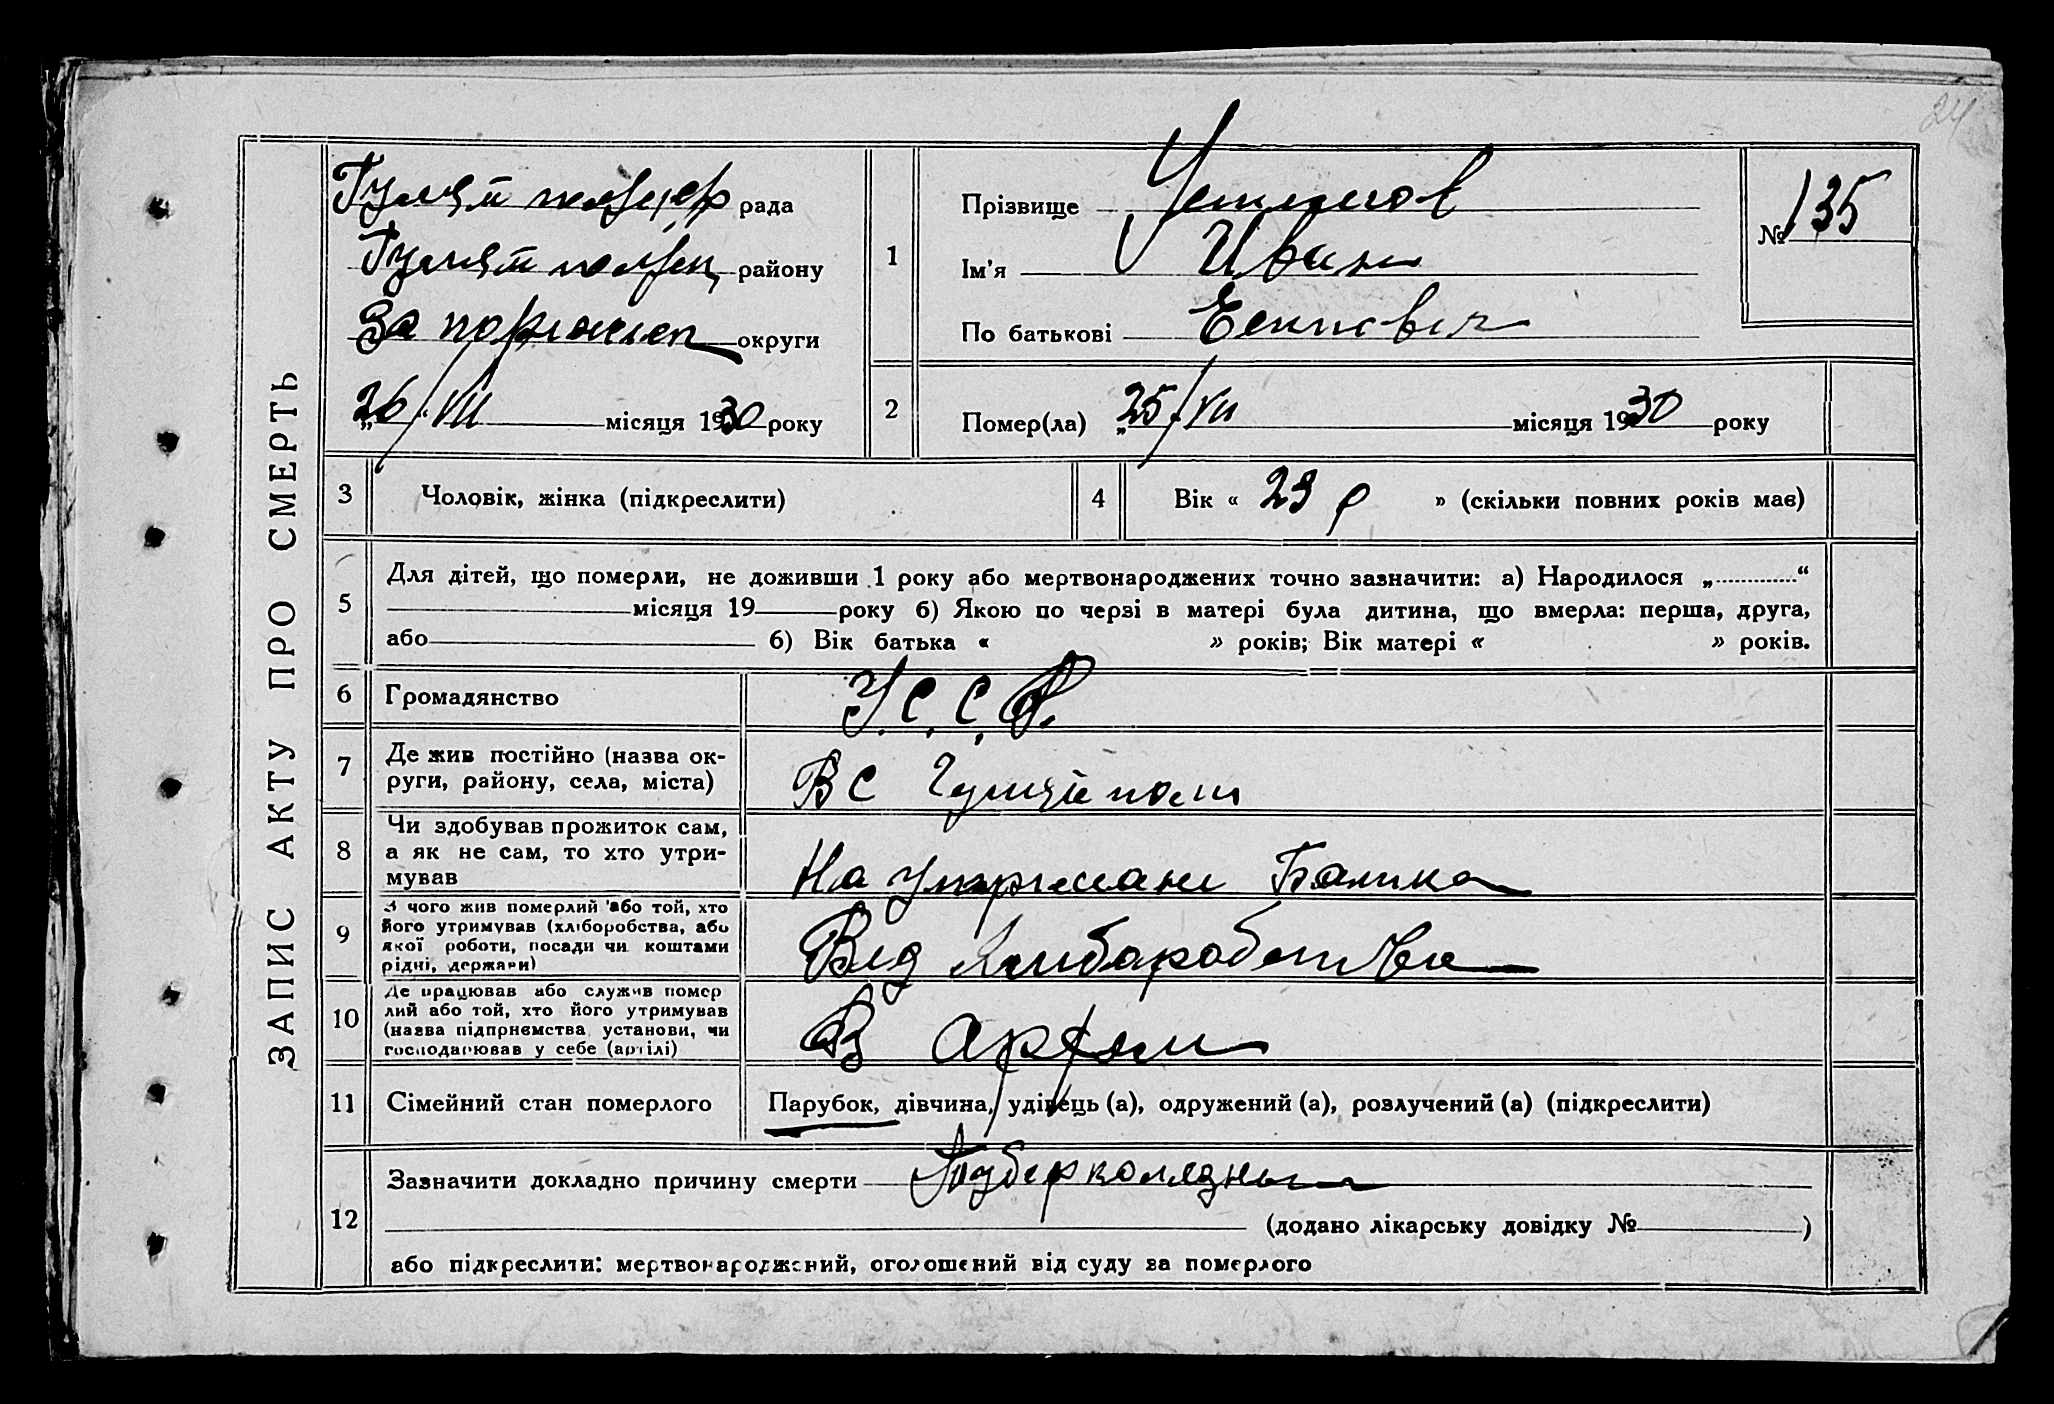 24
ЗАПИС АКТУ ПРО СМЕРТЬ
Гуляй рада
Гуляй району
Запорожск округи
„26“/VII місяця 1930 року
1
Прізвище
Ім'я Иван
По батькові
№ 135
2
Помер(ла) „25/VII місяця 1930 року
3
Чоловік, жінка (підкреслити)
4
Вік « 23 р » (скільки повних років має)
5
Для дітей, що померли, не доживши 1 року або мертвонароджених точно зазначити: а) Народилося „............“
місяця 19 року б) Якою по черзі в матері була дитина, що вмерла: перша, друга,
або б) Вік батька « » років; Вік матері « » років.
6
Громадянство
У.С.С.Р.
7
Де жив постійно (назва ок-
руги, району, села, міста)
В с Гуляй поли
8
Чи здобував прожиток сам,
а як не сам, то хто утри-
мував
На утримани Батька
9
З чого жив померлий або той, хто
його утримував (хліборобства, або
якої роботи, посади чи коштами
рідні, держави)
Від
10
Де працював або служив помер
лий або той, хто його утримував
(назва підприємства установи, чи
господарював у себе (артілі)
В артели
11
Сімейний стан померлого
Парубок, дівчина, удівець (а), одружений (а), розлучений (а) (підкреслити)
12
Зазначити докладно причину смерти
(додано лікарську довідку № )
або підкреслити: мертвонароджений, оголошений від суду за померлого